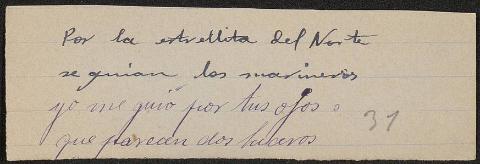 Por la estrellita del Norte
se guian los marineros
yo me guio por tus ojos
que parecen dos luceros
31